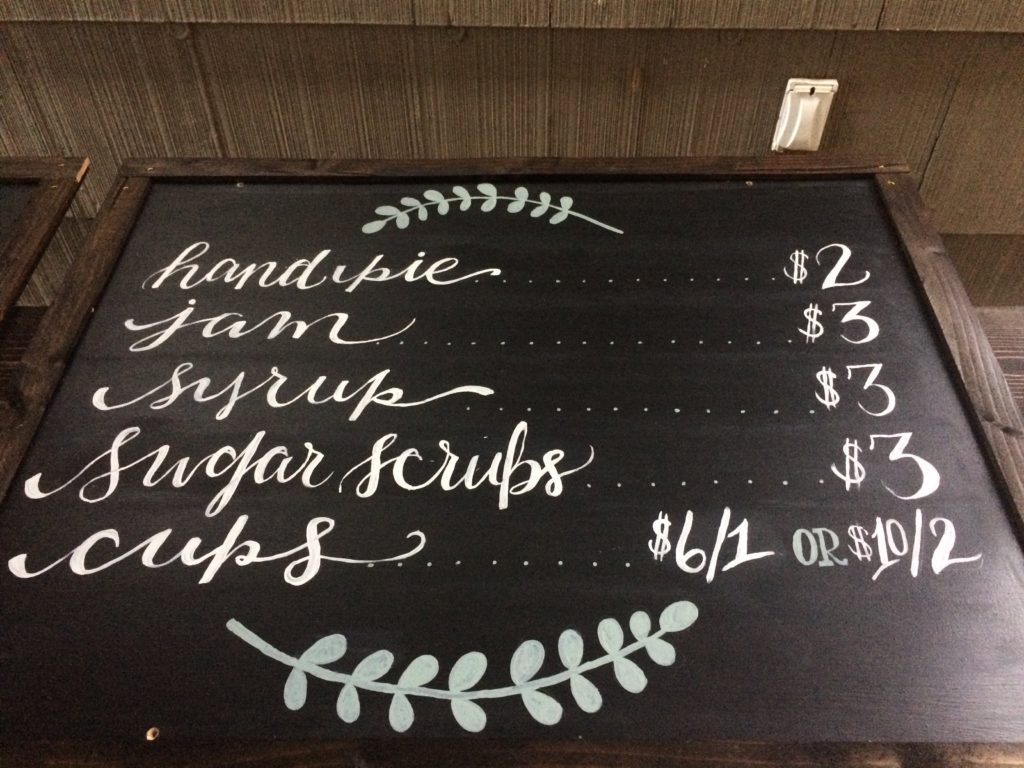 hand pie . . . . . . . . . . . . . . . $2
jam . . . . . . . . . . . . . . . . . . $3
syrup . . . . . . . . . . . . . . . $3
sugar scrubs . . . . . . . . . . $3
cups . . . . . . . . . . $6/1 OR $10/2